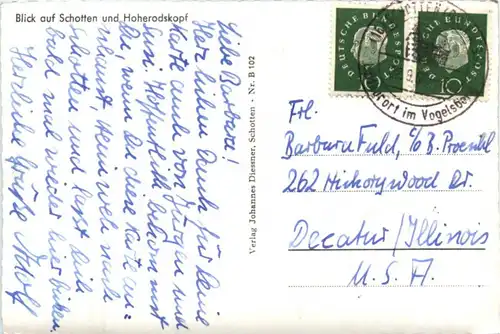 Blick auf Schotten und Hoherodskopf
Liebe Barbara!
Herzlichen Dank für Deine
Karte auch von Jürgen und
Susi. Hoffentlich bekommst
Du, wenn Du diese Karte an=
schaust, Heimweh nach
Schotten und lässt Dich
bald mal wieder hier blicken.
Herzliche Grüße Adolf
Verlag Johannes Diessner, Schotten - Nr. B 102
DEUTSCHE BUNDESPOST
10
DEUTSCHE BUNDESPOST
10
SCHOTTEN
Luftkurort im Vogelsberg
Frl.
Barbara Fuld, c/o B. Proehl
262 Hickorywood Dr.
Decatur/Illinois
U. S. A.